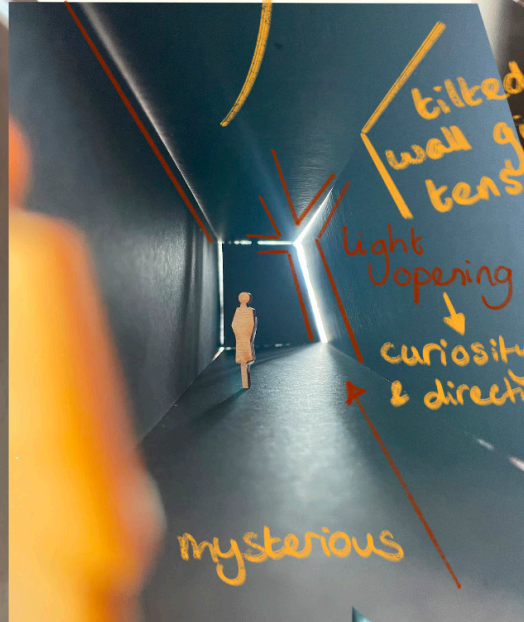 tilted
wall gi
tens
light
opening
curiosit
& directi
mysterious